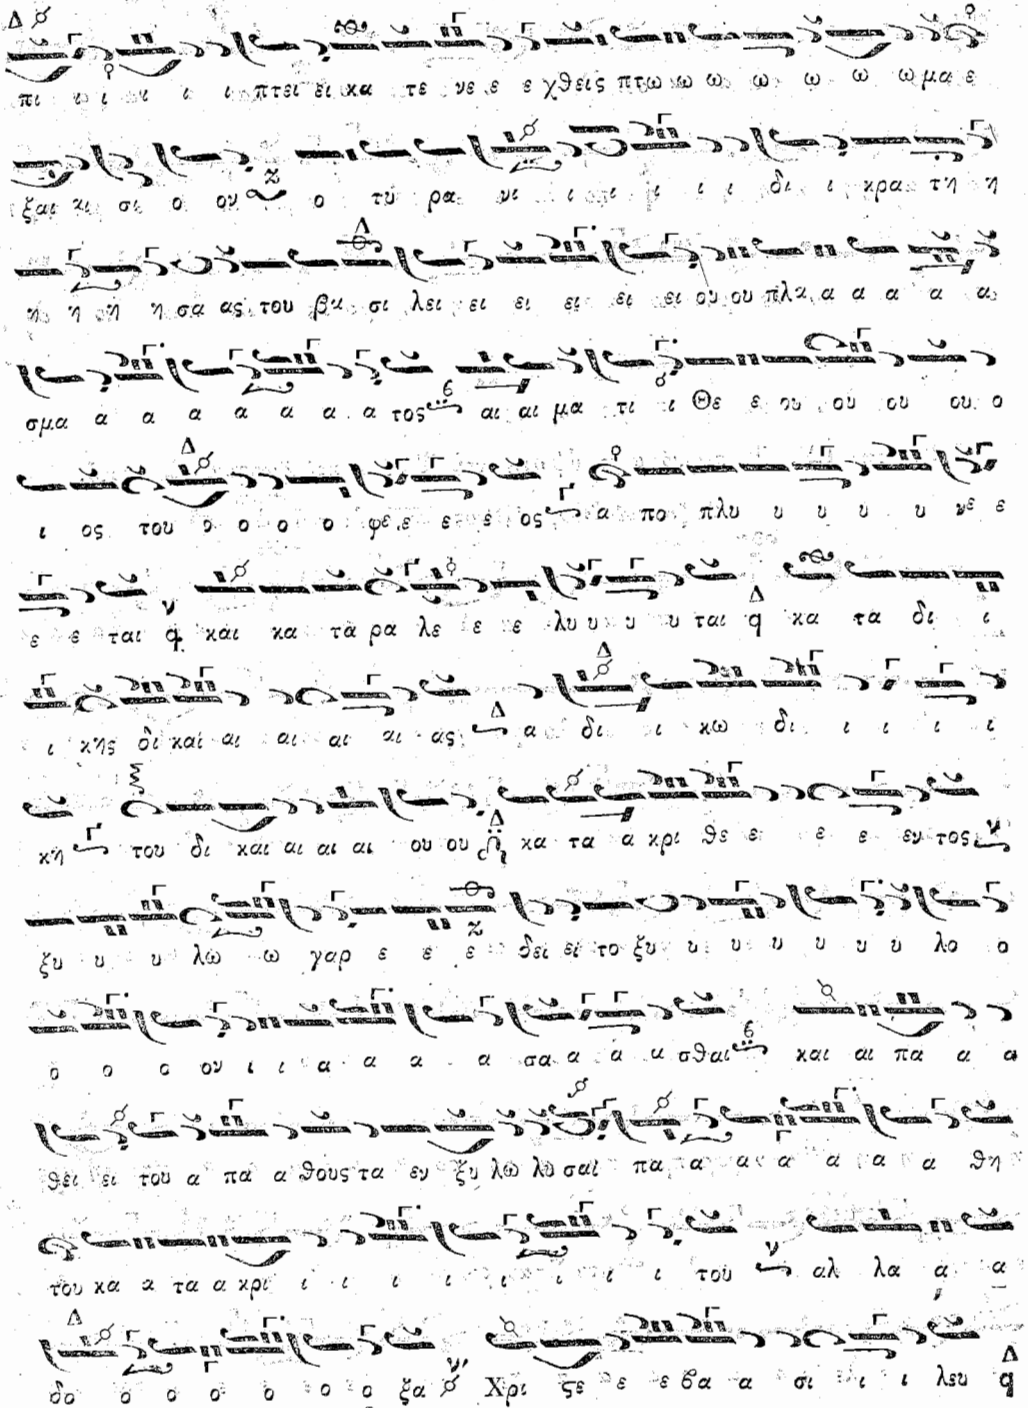 πι ι ι ι ι ι πτει ει κα τε νε ε ε χθεις πτω ω ω ω ω ω ω μα ε
ξαι κι σι ο ου ο τυ ρα νι ι ι ι ι ι δι ι κρα τη η
η η η η σα ας του βα σι λει ει ει ει ει ει ου ου πλα α α α α α
σμα α α α α α α α τος αι αι μα τι ι Θε ε ου ου ου ου ο
ι ος του ο ο ο ο φε ε ε ε ος α πο πλυ υ υ υ υ νε ε
ε ε ται και κα τα ρα λε ε ε λυ υ υ υ ται κα τα δι ι
ι κης δι και αι αι αι αι ας α δι ι κω δι ι ι ι ι
κη του δι και αι αι αι ου ου κα τα α κρι θε ε ε ε εν τος
ξυ υ υ λω ω γαρ ε ε ε δει ει το ξυ υ υ υ υ υ υ λο ο
ο ο ο ου ι ι α α α σα α α α σθαι και αι πα α α
θει ει του α πα α θους τα εν ξυ λω λυ σαι πα α α α α α α θη
του κα α τα α κρι ι ι ι ι ι ι ι ι του αλ λα α α
δο ο ο ο ο ο ο ξα Χρι ϛε ε ε βα α σι ι ι λευ